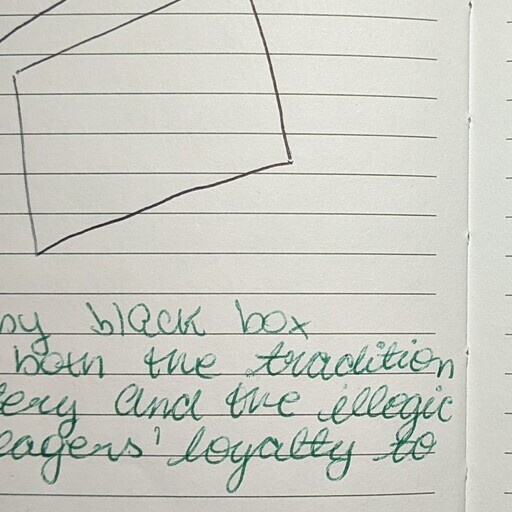 by black box
both the tradition
tery and the illogic
eagers' loyalty to